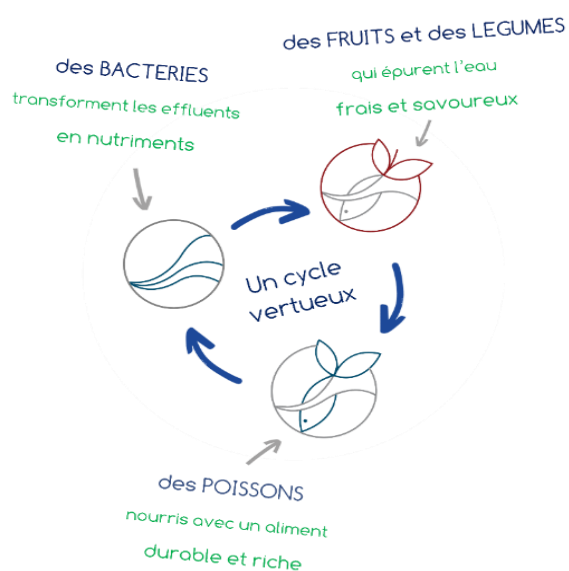 des BACTERIES
transforment les effluents
en nutriments
des FRUITS et des LEGUMES
qui épurent l'eau
frais et savoureux
Un cycle
vertueux
des POISSONS
nourris avec un aliment
durable et riche